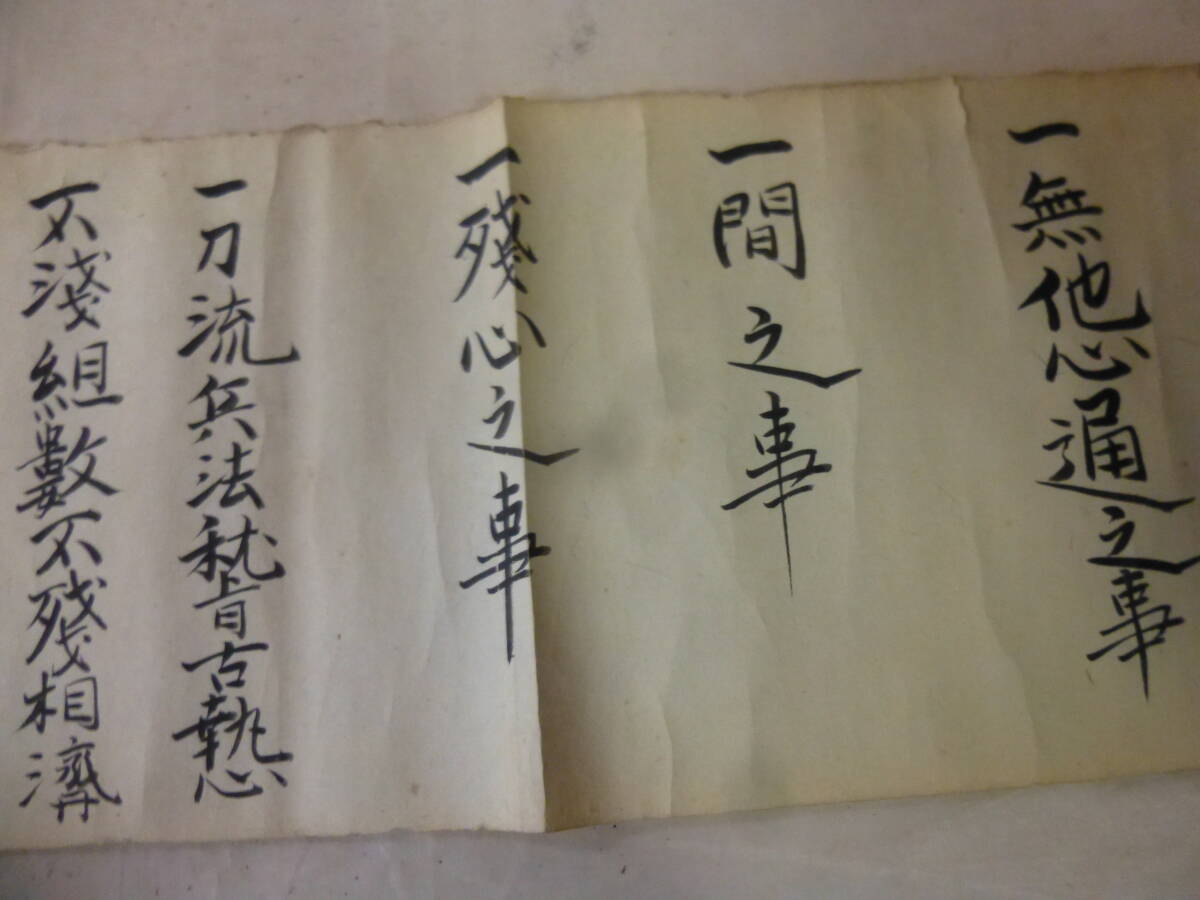 一無他心通之事
一間之事
一殘心之事
一刀流兵法嵆旨古執心
不淺組數不殘相濟